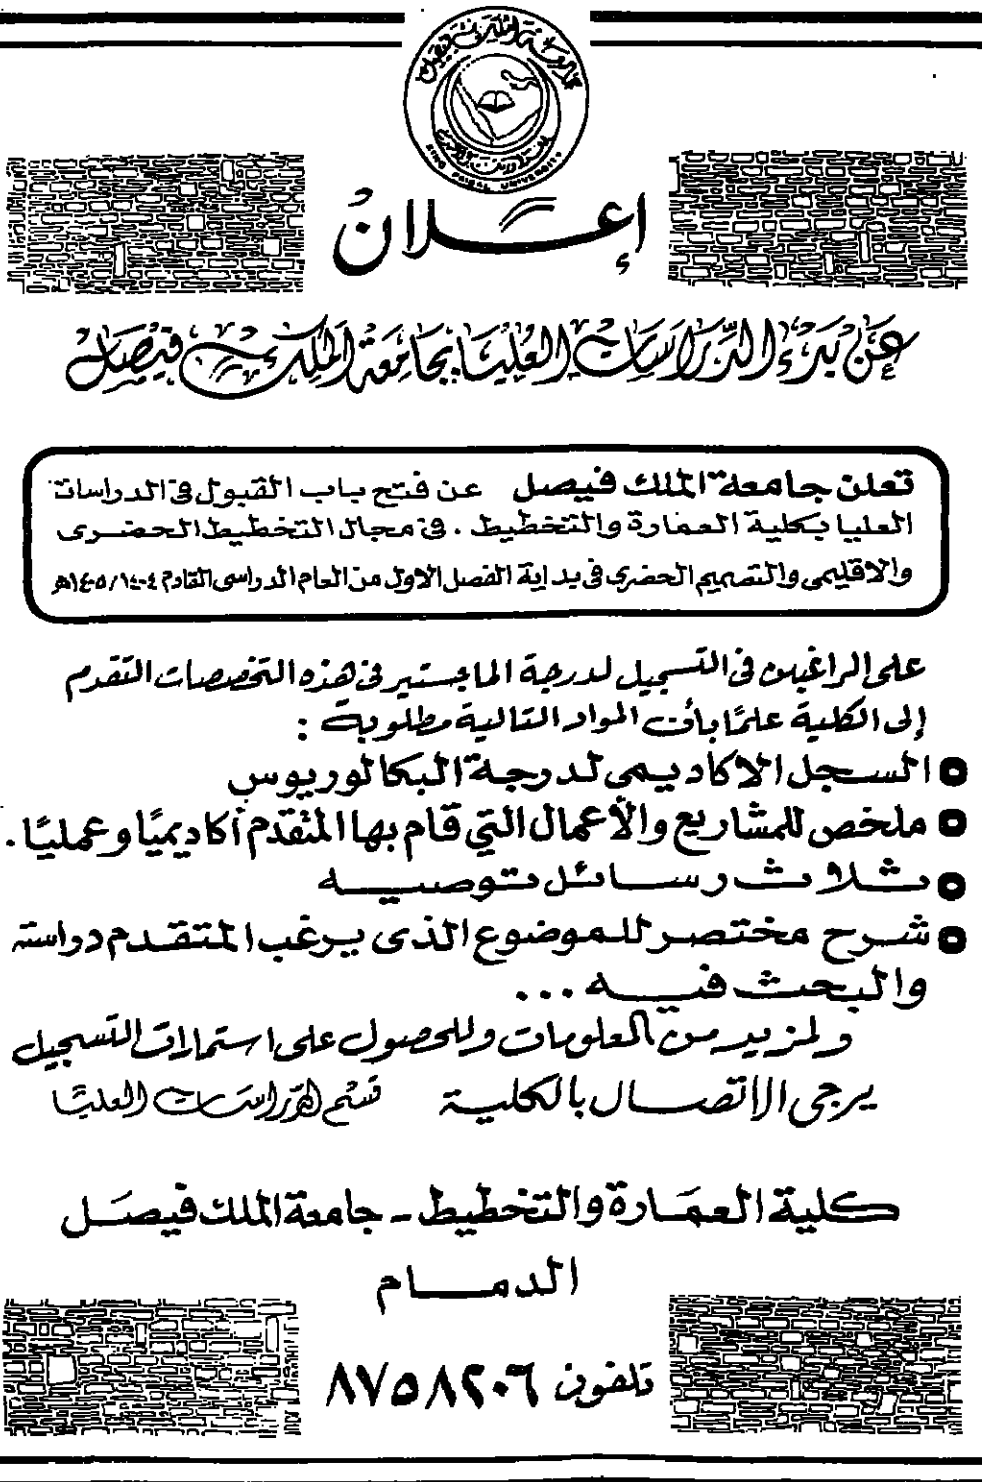 جامعة الملك فيصل
KING FAISAL UNIVERSITY
إعلان
عن بدء الدراسات العليا بجامعة الملك فيصل
تعلن جامعة الملك فيصل عن فتح باب القبول في الدراسات
العليا بكلية العمارة والتخطيط . في مجال التخطيط الحضرى
والاقليمى والتصميم الحضرى فى بداية الفصل الاول من العام الدراسى القادم ١٤٠٤/١٤٠٥هـ
على الراغبين في التسجيل لدرجة الماجستير في هذه التخصصات التقدم
إلى الكلية علمًا بأن المواد التالية مطلوبة :
السجل الاكاديمى لدرجة البكالوريوس
ملخص للمشاريع والأعمال التي قام بها المتقدم أكاديميًا وعمليًا .
ثلاث رسائل توصيه
شرح مختصر للموضوع الذى يرغب المتقدم دراسته
والبحث فيه ...
ولمزيد من المعلومات وللحصول على استمارات التسجيل
يرجى الاتصال بالكلية قسم الدراسات العليا
كلية العمارة والتخطيط - جامعة الملك فيصل
الدمام
تلفون ٨٧٥٨٢٠٦